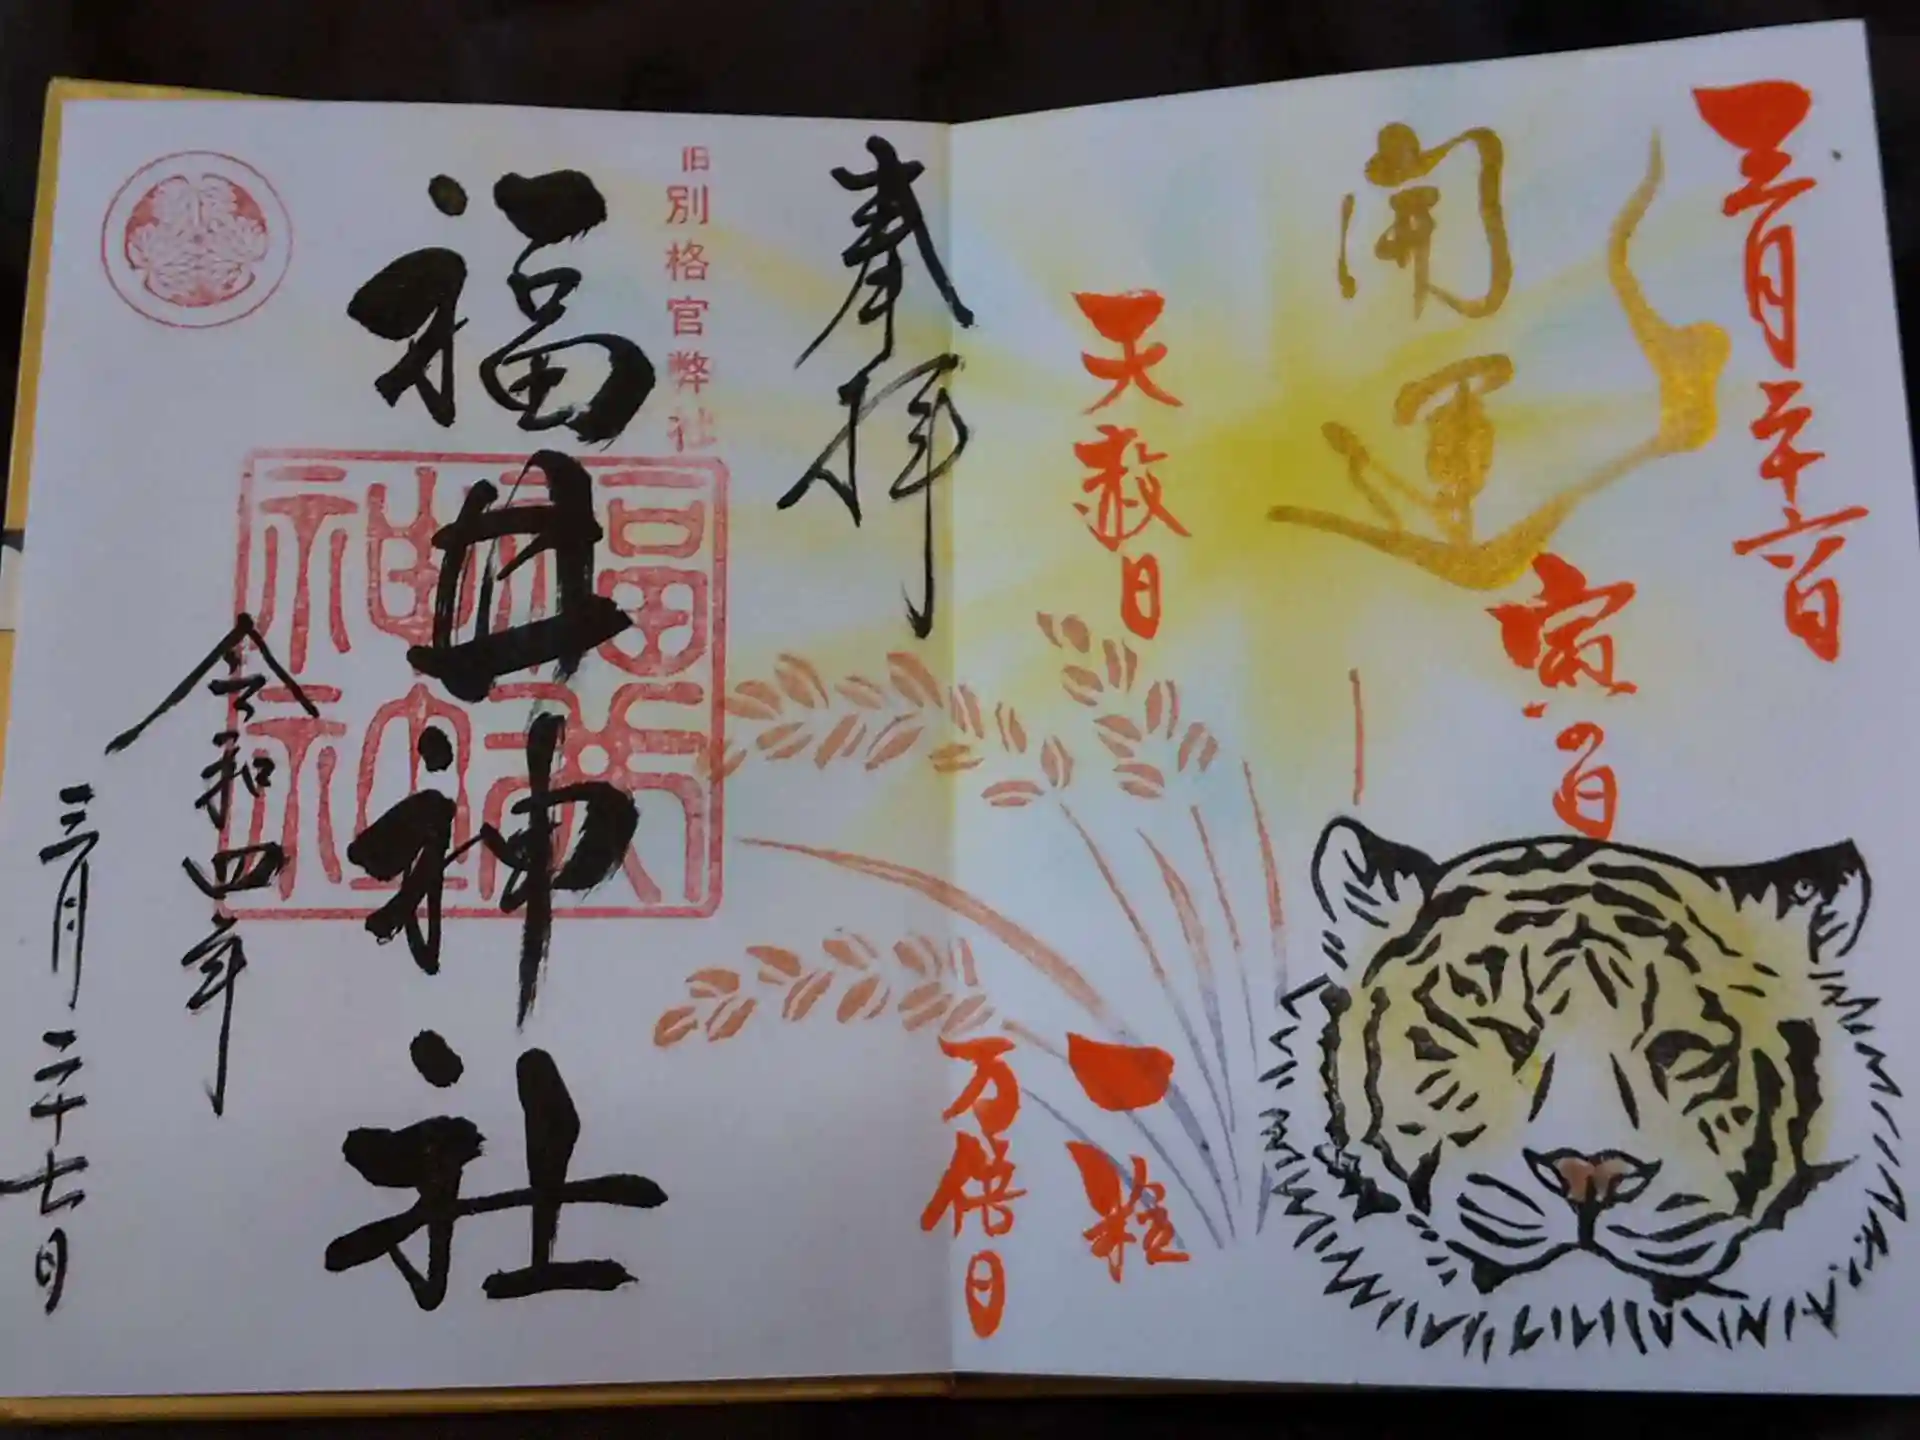 三月二十六日
開運
寅の日
天赦日
一粒
万倍日
奉拝
旧別格官幣社
福井神社
令和四年
三月二十七日